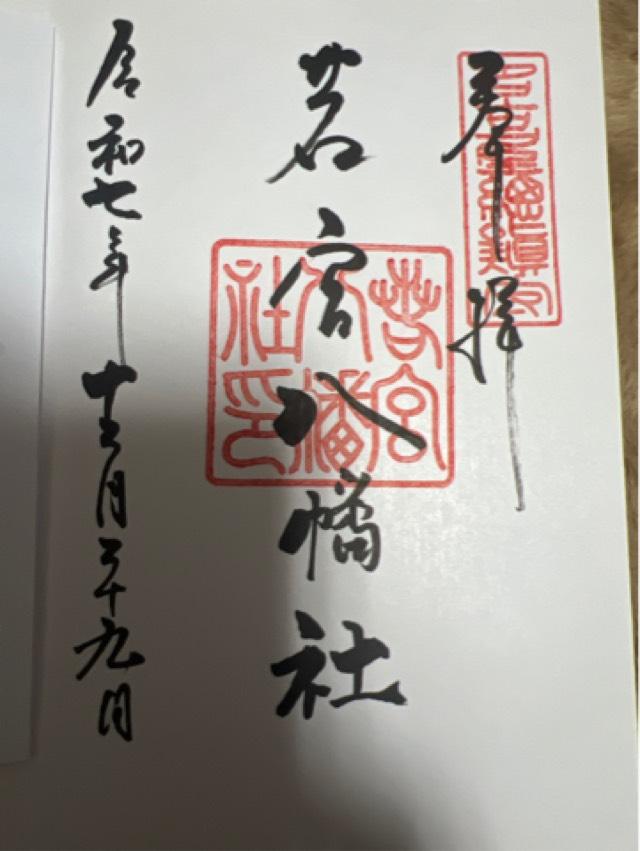 名古屋總鎮守
奉拝
若宮八幡社
若宮八幡社印
令和七年十二月二十九日